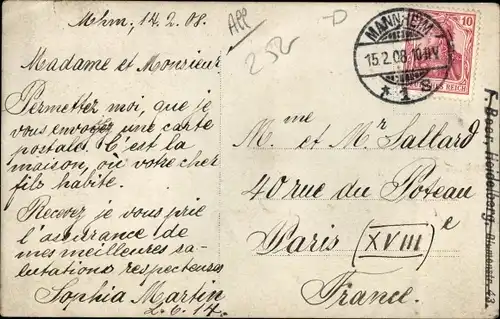 Mhm, 14.2.08.
Madame et Monsieur
Permettez moi, que je
vous envoyez une carte
postale. C'est la
maison, où votre cher
fils habite.
Recevez je vous prie
l'assurance de
mes meilleures sa-
lutations respecteuses
Sophia Martin
2. 6. 14.
252
MANNHEIM
15.2.08. 10-11V
* 1 s
10
DEUTSCHES REICH
M.me et M.r Sallard
40 rue du Poteau
Paris (XVIII e
France.
F. Beer, Heidelberg, Blumenstr. 23.